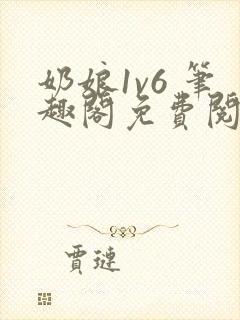 奶娘1v6 筆
趣閣免費閱
賈璉